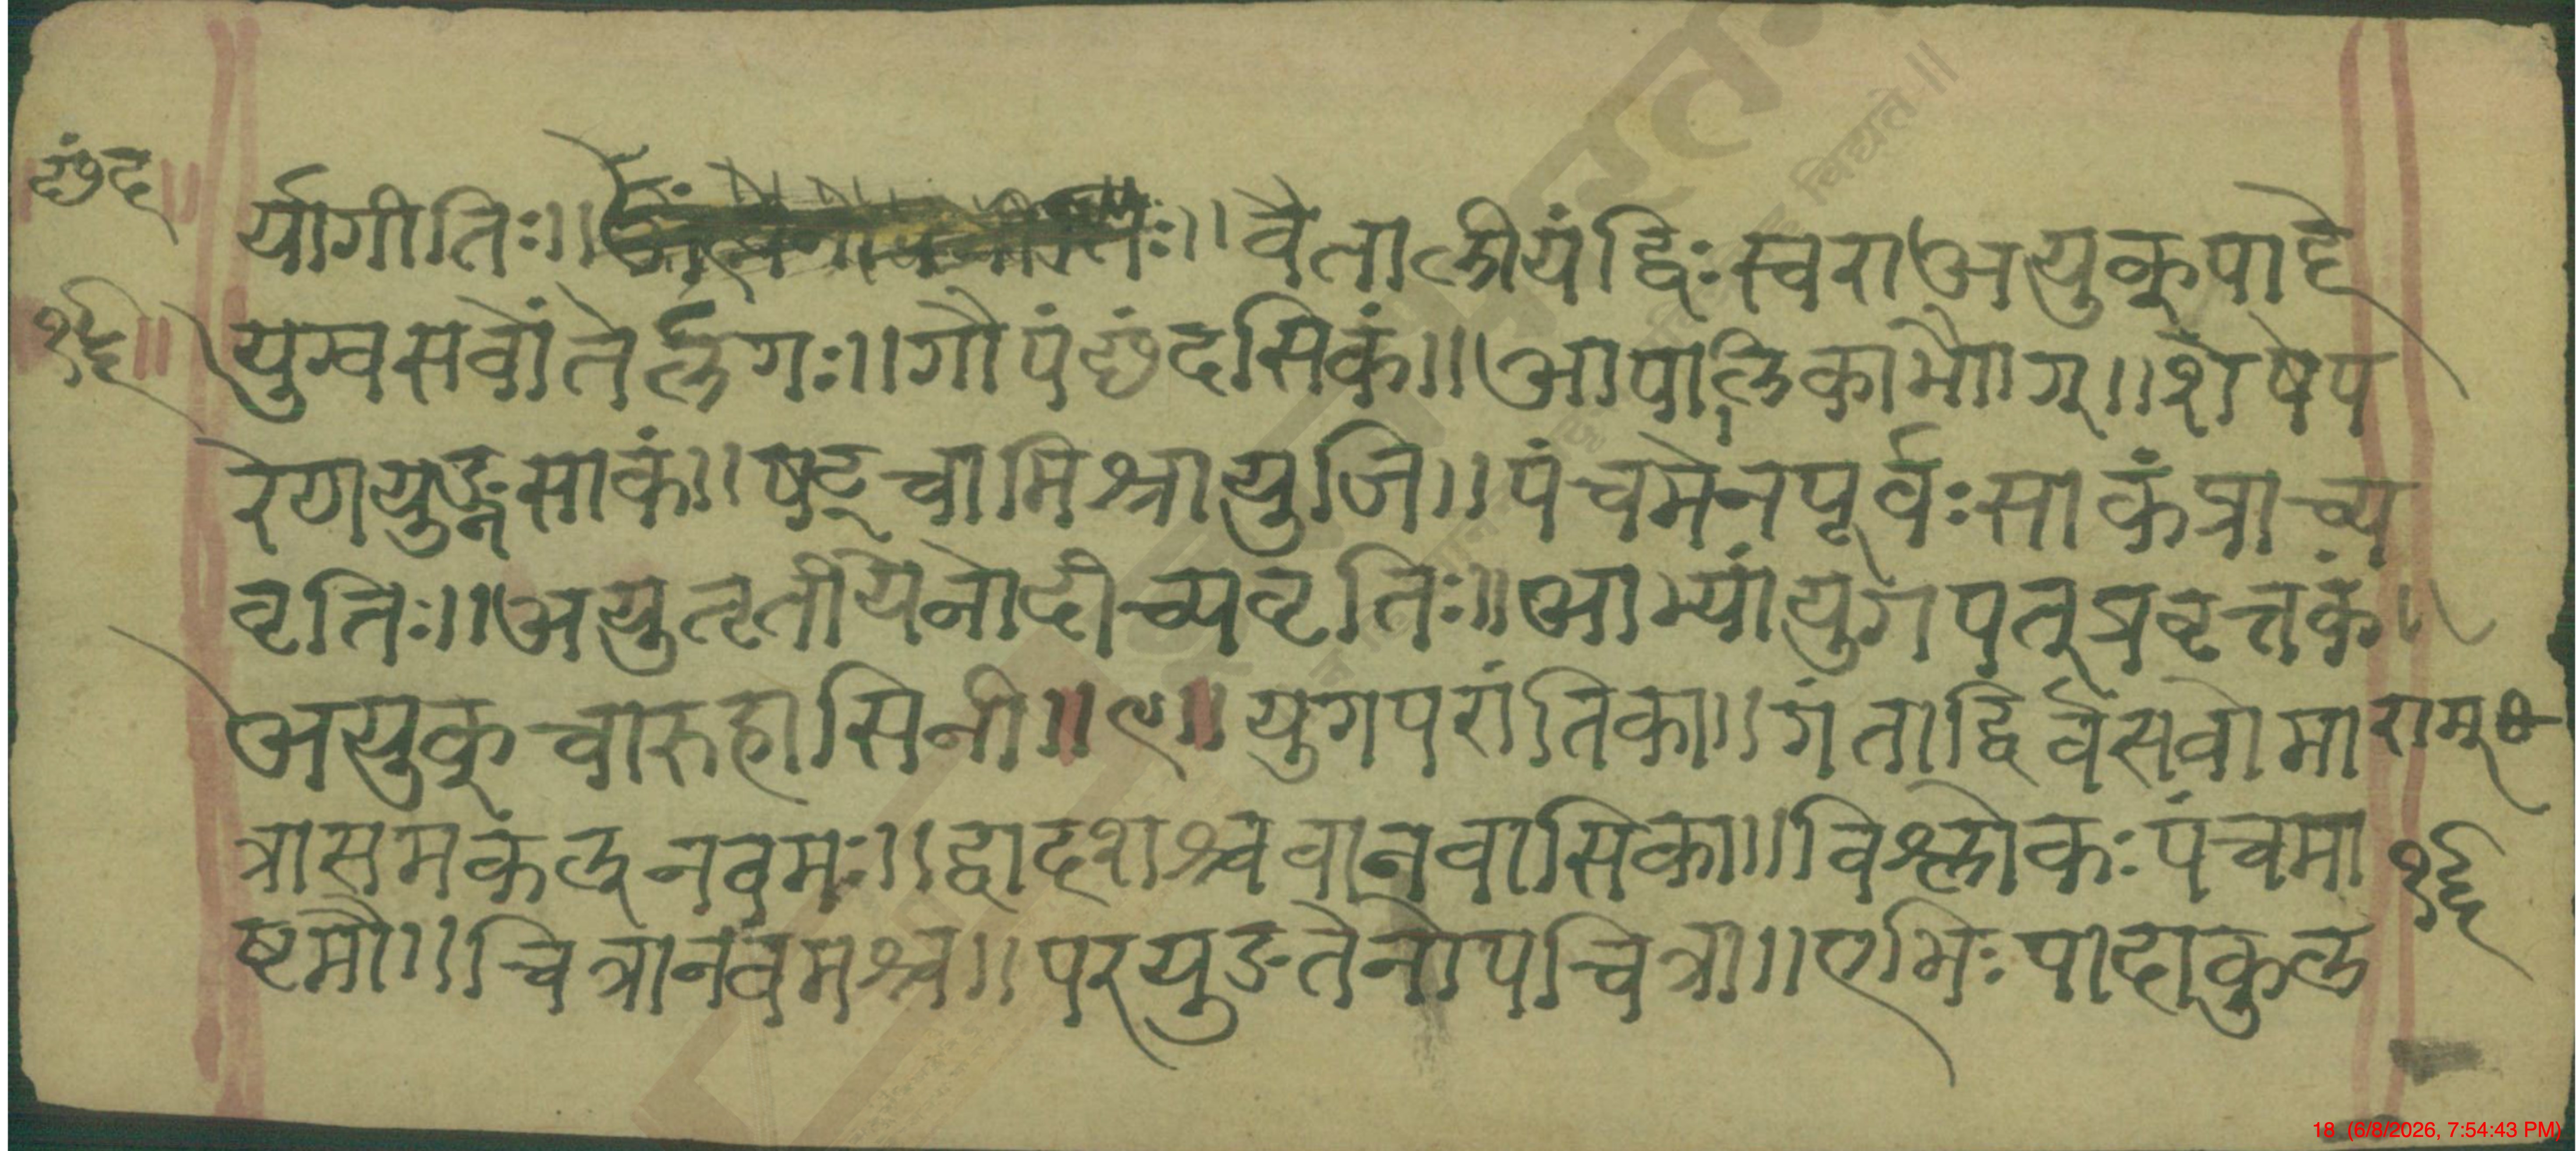 छंद
र्यागीतिः॥ वैतालीयंद्विःस्वराअयुक्पादे
१६॥
युग्वसवोंतेर्ल्गः॥गौपंछंदसिकं॥आपातलिकाभौाग्॥शेषेप
रेणयुङ्नसाकं॥षट्चामिश्रायुजि॥पंचमेनपूर्वःसाकंप्राच्य
वृतिः॥अयुतृतीयेनोदीच्यवृतिः॥आभ्यांयुगपत्प्रवृत्तकं॥
अयुक्चारुहासिनी॥९॥युगपरांतिका॥गंताद्विर्वसवोमा
राम्
त्रासमकंल्नवमः॥द्वादशश्चवानवासिका॥विश्लोकःपंचमा
१६
ष्टमौ॥चित्रानवमश्च॥परयुङतेनोपचित्रा॥एभिःपादाकुल
18 (6/8/2026, 7:54:43 PM)